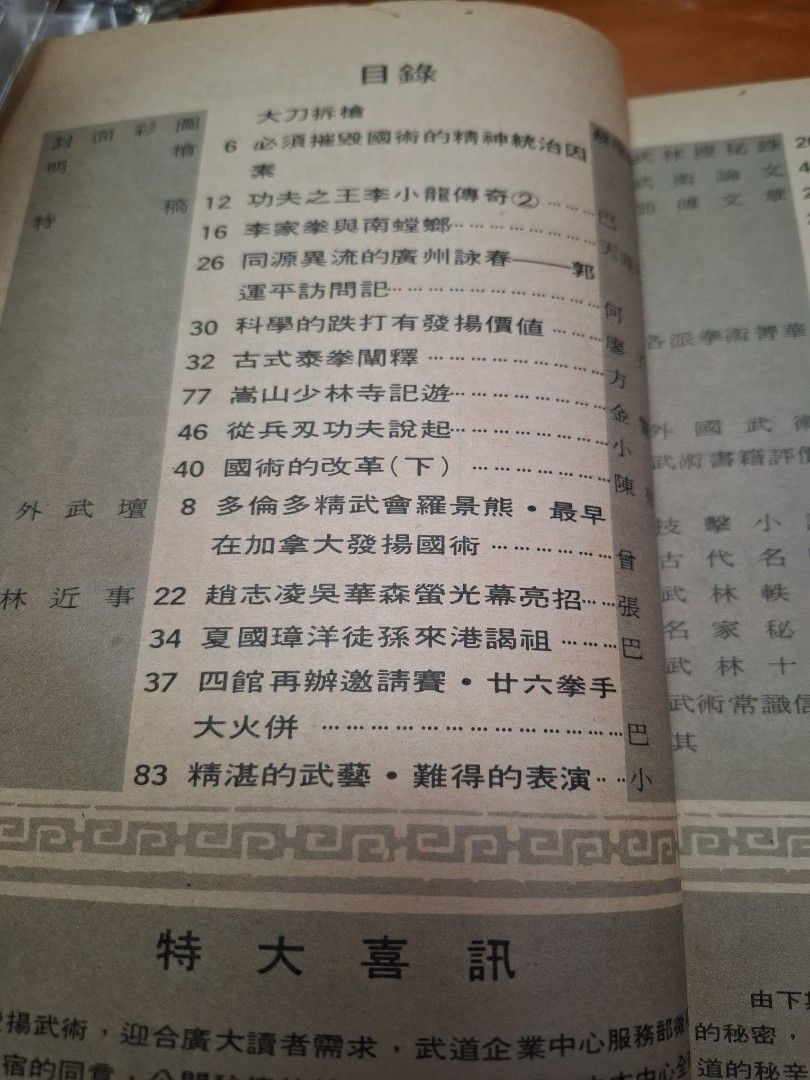 目錄
封面彩圖 大刀拆槍
明槍 6 必須摧毀國術的精神統治因
素
特稿 12 功夫之王李小龍傳奇② ……巴
16 李家拳與南螳螂………………
26 同源異流的廣州詠春——郭
運平訪問記………………………何
30 科學的跌打有發揚價值 ……廖
32 古式泰拳闡釋 …………………方
77 嵩山少林寺記遊………………金
46 從兵刄功夫說起………………小
40 國術的改革(下) ………………陳
外武壇 8 多倫多精武會羅景熊・最早
在加拿大發揚國術 ……………曾
林近事 22 趙志凌吳華森螢光幕亮招……張
34 夏國璋洋徒孫來港謁祖 ………巴
37 四館再辦邀請賽・廿六拳手
大火併 ……………………………巴
83 精湛的武藝・難得的表演……小
特大喜訊
揚武術，迎合廣大讀者需求，武道企業中心服務部
宿的同意，公開
武林搜秘錄
武術論文
師傅文章
各派拳術菁華
外國武術
武術書籍評價
技擊小
古代名
武林軼
名家秘
武林十
武術常識信
其
由下
的秘密，
道的秘辛